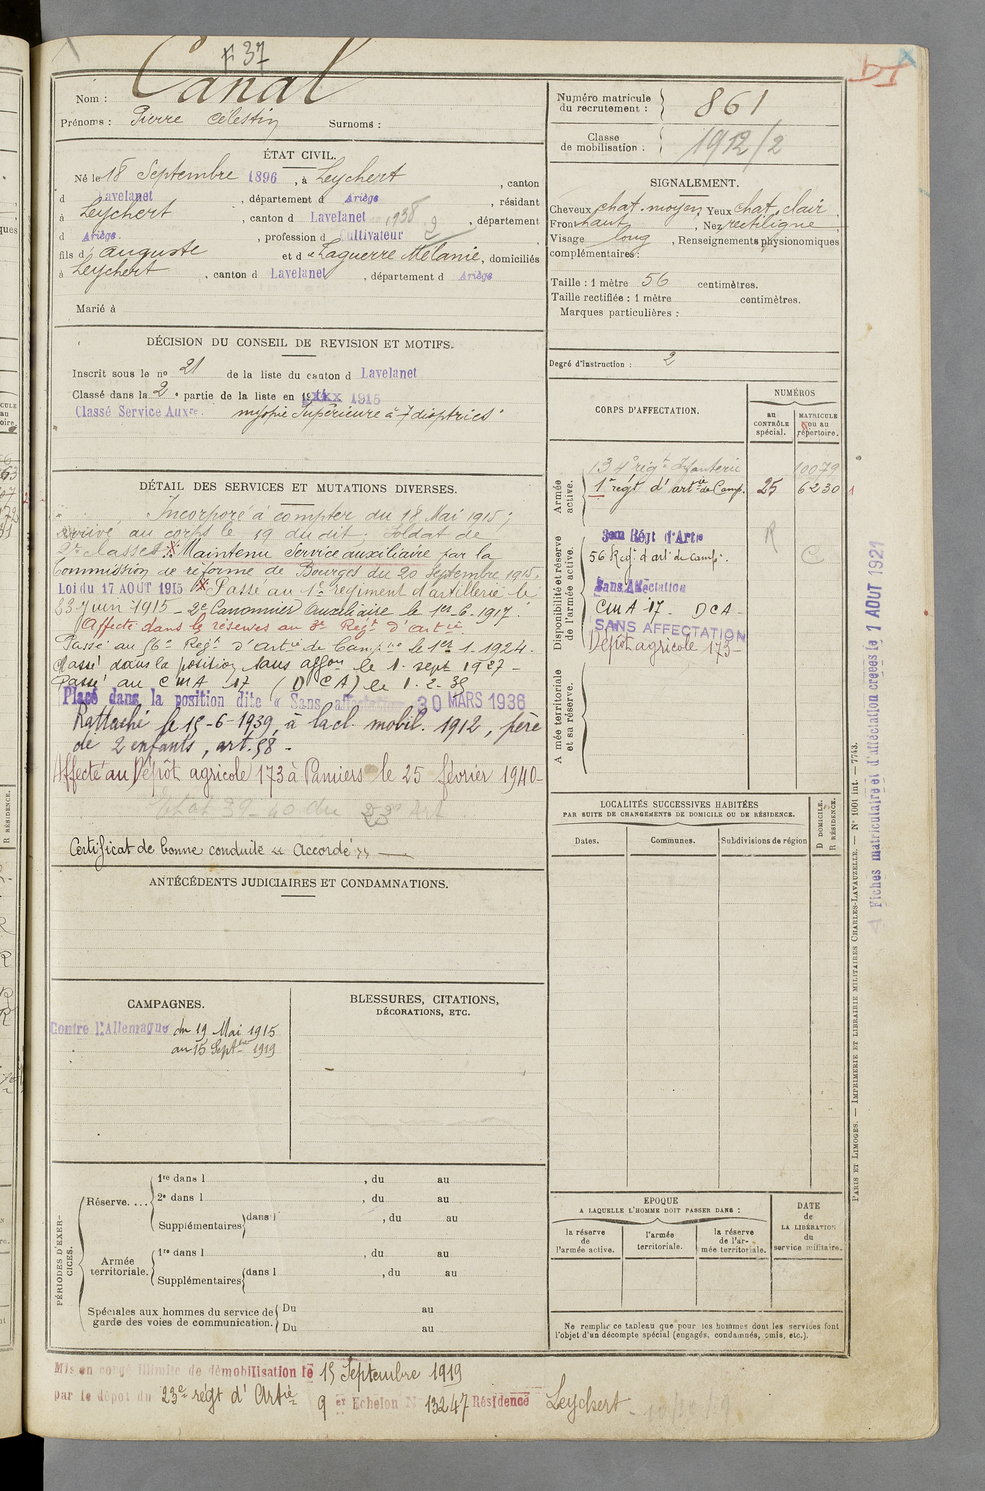 F 37
Nom : Canal
Prénoms : Pierre Célestin Surnoms :
ÉTAT CIVIL.
Né le 18 Septembre 1896, à Leychert, canton
d Lavelanet, département d Ariège, résidant
à Leychert, canton d Lavelanet 1938 2, département
d Ariège, profession d Cultivateur
fils d' auguste et d e Laguerre Mélanie, domiciliés
à Leychert, canton d Lavelanet, département d Ariège
Marié à
DÉCISION DU CONSEIL DE REVISION ET MOTIFS.
Inscrit sous le no 21 de la liste du canton d Lavelanet
Classé dans la 2e partie de la liste en 1915
Classé Service Auxre. myopie Supérieure à 7 dioptries
DÉTAIL DES SERVICES ET MUTATIONS DIVERSES.
Incorporé à compter du 18 Mai 1915;
arrivé au corps le 19 du dit; Soldat de
2e classe. Maintenu Service auxiliaire par la
Commission de réforme de Bourges du 20 Septembre 1915.
Loi du 17 AOUT 1915 Passé au 1er régiment d'artillerie le
23 juin 1915 - 2e Canonnier Auxiliaire le 1er-6-1917.
Affecté dans les réserves au 3e Régt d'artie
Passé au 56e Régt d'artie de Campne le 1er-1-1924.
Passé dans la position sans affon le 1. sept 1927 -
Passé au CMA 17 (DCA) le 1-2-35
Placé dans la position dite « Sans affectation 30 MARS 1936
Rattaché le 15-6-1939, à la cl. mobil. 1912, père
de 2 enfants, art. 58 -
Affecté au Dépôt agricole 173 à Pamiers le 25 février 1940 -
39-40 du 23e Art
Certificat de bonne conduite « Accordé »
ANTÉCÉDENTS JUDICIAIRES ET CONDAMNATIONS.
CAMPAGNES.
Contre l'Allemagne du 19 Mai 1915
au 15 Septbre 1919
BLESSURES, CITATIONS,
DÉCORATIONS, ETC.
PÉRIODES D'EXERCICES.
Réserve....
1re dans l , du au
2e dans l , du au
Supplémentaires dans l , du au
Armée
territoriale.
1re dans l , du au
Supplémentaires dans l , du au
Spéciales aux hommes du service de
garde des voies de communication.
Du au
Du au
Numéro matricule
du recrutement : 861
Classe
de mobilisation : 1912/2
SIGNALEMENT.
Cheveux chat. moyen, Yeux chat. clair
Front haut, Nez rectiligne
Visage long, Renseignements physionomiques
complémentaires :
Taille : 1 mètre 56 centimètres.
Taille rectifiée : 1 mètre centimètres.
Marques particulières :
Degré d'instruction : 2
CORPS D'AFFECTATION.
NUMÉROS
au
CONTRÔLE
spécial.
MATRICULE
ou au
répertoire.
Armée
active.
134e régt Infanterie 10079
1er régt d'artie de Camp. 25 6230
Disponibilité et réserve
de l'armée active.
3eme Régt d'Artie R
56 Reg. d'art. de camp. C
Sans Affectation
CMA 17 - DCA -
SANS AFFECTATION
Dépôt agricole 173 -
Armée territoriale
et sa réserve.
LOCALITÉS SUCCESSIVES HABITÉES
PAR SUITE DE CHANGEMENTS DE DOMICILE OU DE RÉSIDENCE.
Dates. Communes. Subdivisions de région
D DOMICILE.
R RÉSIDENCE.
EPOQUE
A LAQUELLE L'HOMME DOIT PASSER DANS :
la réserve
de
l'armée active.
l'armée
territoriale.
la réserve
de l'ar-
mée territoriale.
DATE
de
LA LIBÉRATION
du
service militaire.
Ne remplir ce tableau que pour les hommes dont les services font
l'objet d'un décompte spécial (engagés, condamnés, omis, etc.).
PARIS ET LIMOGES. — IMPRIMERIE ET LIBRAIRIE MILITAIRES CHARLES-LAVAUZELLE. — No 1001 int. — 7743.
Fiches matriculaire et d'affectation créées le 1 AOUT 1921
Mis en congé illimité de démobilisation le 15 Septembre 1919
par le dépôt du 23e régt d'Artie 9 er Echelon N 13247 Résidence Leychert